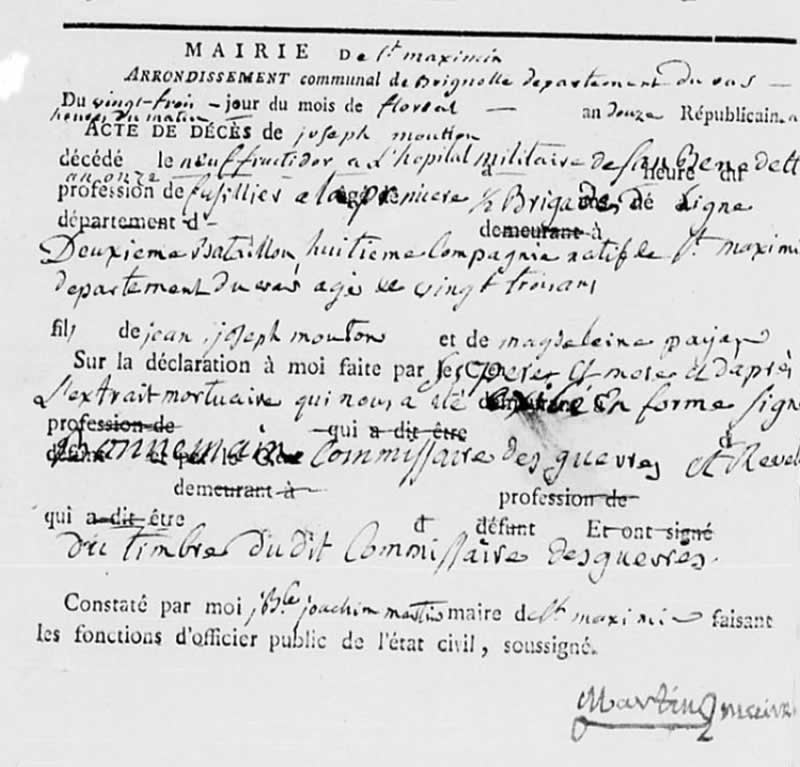 MAIRIE De St. maximin
ARRONDISSEMENT communal de Brignolle departement du var
Du vingt-trois jour du mois de floreal an douze Républicain. a
heures du matin
ACTE DE DÉCÈS de joseph mouton
décédé le neuf fructidor a L'hopital militaire de San Benedett
an onze heure du
profession de fusillier a la premiere ½ Brigade de Ligne
département d demeurant à
Deuxieme Bataillon huitieme Compagnie natif de St. maximi
departement du var agé de vingt trois ans
fils de jean joseph mouton et de magdeleine payan
Sur la déclaration à moi faite par les peres et mere et d'après
L'extrait mortuaire qui nous a été en forme signé
profession de qui a dit être
Commissaire des guerres et Revetu
demeurant à profession de
qui a dit être défunt Et ont signé
Du timbre Du dit Commissaire des guerres.
Constaté par moi jBte joachim martin maire de St. maximin faisant
les fonctions d'officier public de l'état civil, soussigné.
Martin maire